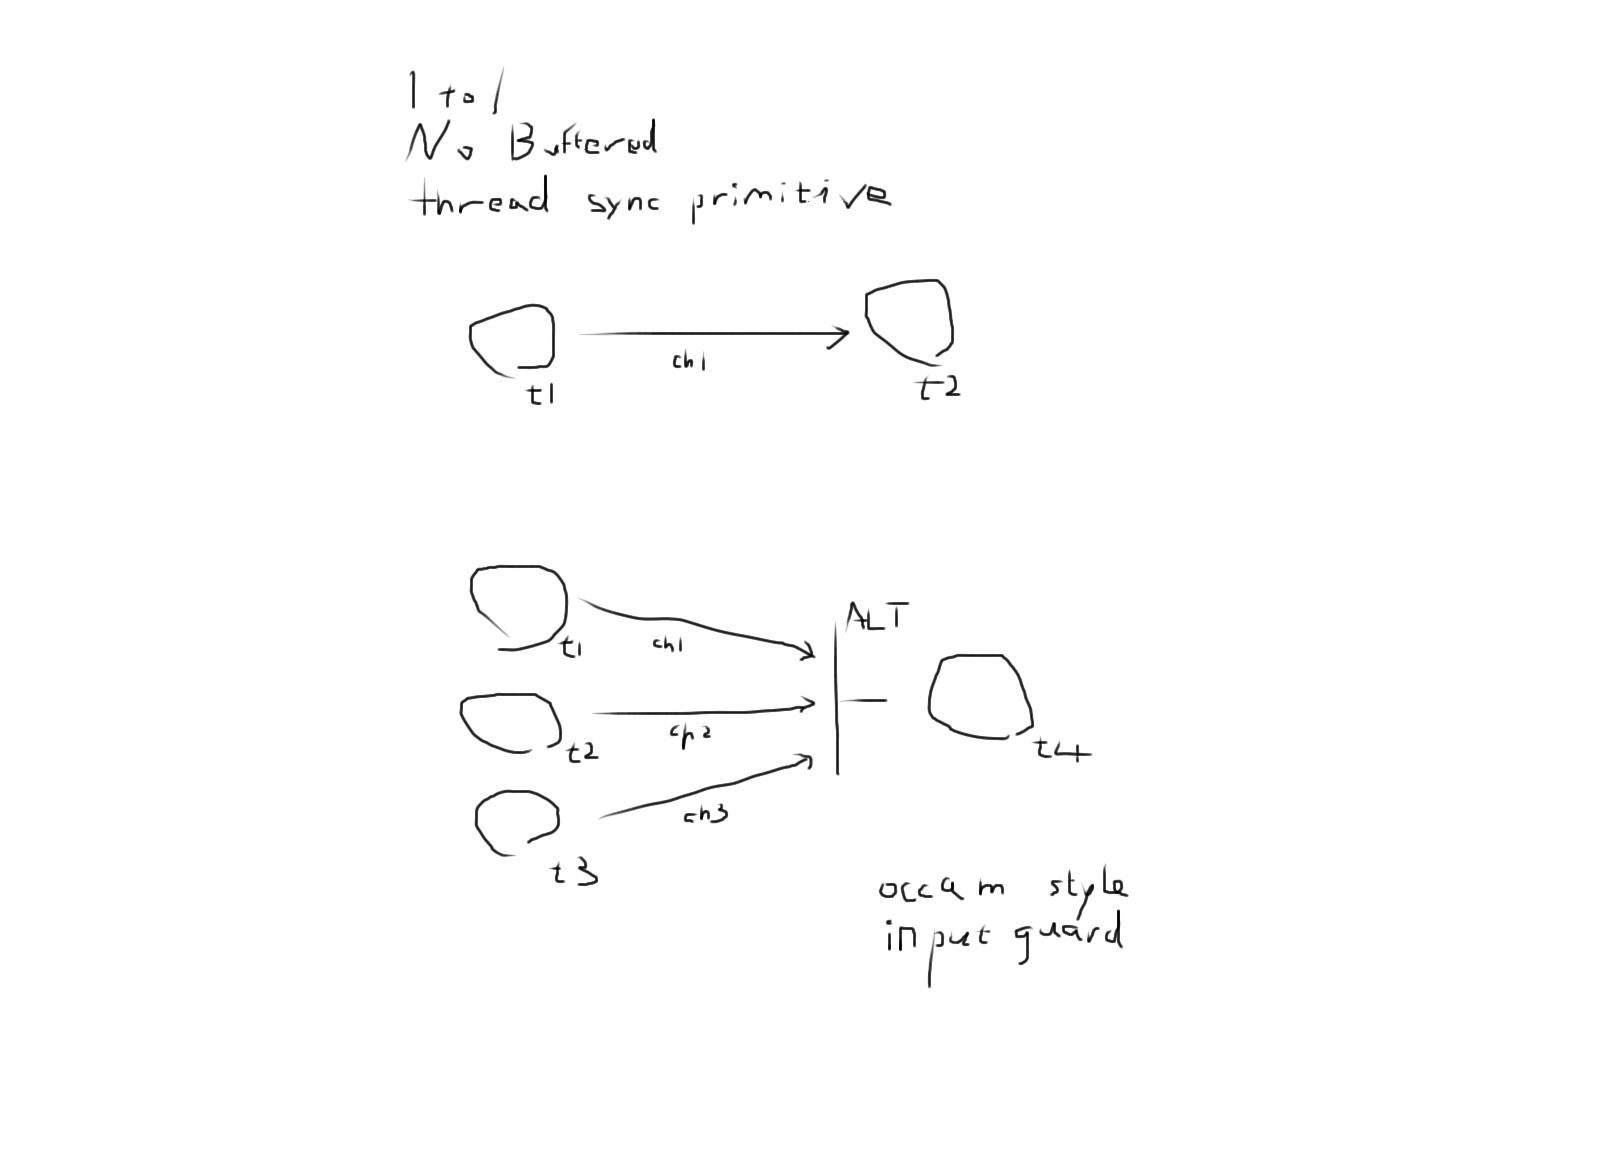 1 to 1
No Buffered
thread sync primitive
ch1
t1
t2
ALT
t1
ch1
t2
ch2
t4
ch3
t3
occam style
input guard